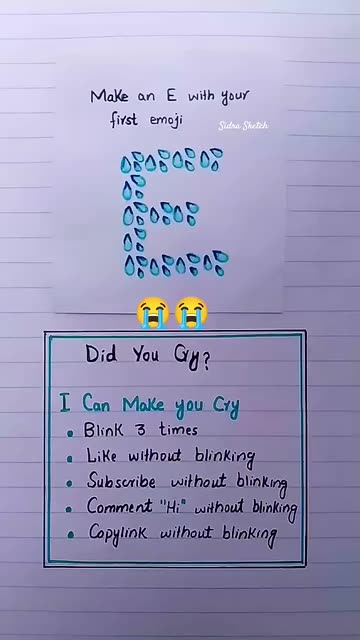 Make an E with your
first emoji
Sidra Sketch
Did You Cry?
I Can Make you Cry
• Blink 3 times
• Like without blinking
• Subscribe without blinking
• Comment "Hi" without blinking
• Copylink without blinking